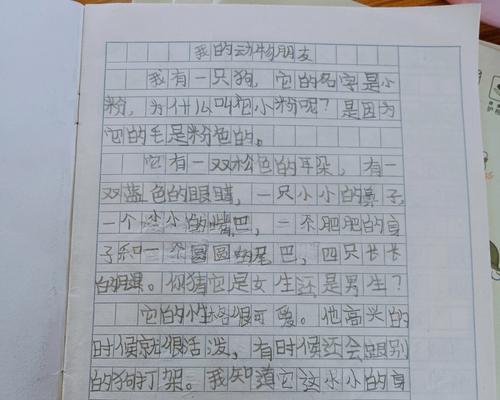 我的动物朋友
我有一只狗，它的名字是小
粉，为什么叫它小粉呢？是因为
它的毛是粉色的。
它有一双松色的耳朵，有一
双蓝色的眼睛，一只小小的鼻子，
一个小小的嘴巴，一个肥肥的身
子和一个圆圆的尾巴，四只长长
的腿。你猜它是女生还是男生？
它的性格很可爱。他高兴的
时候就很活泼，有时候还会跟别
的狗打架。我知道它这小小的身